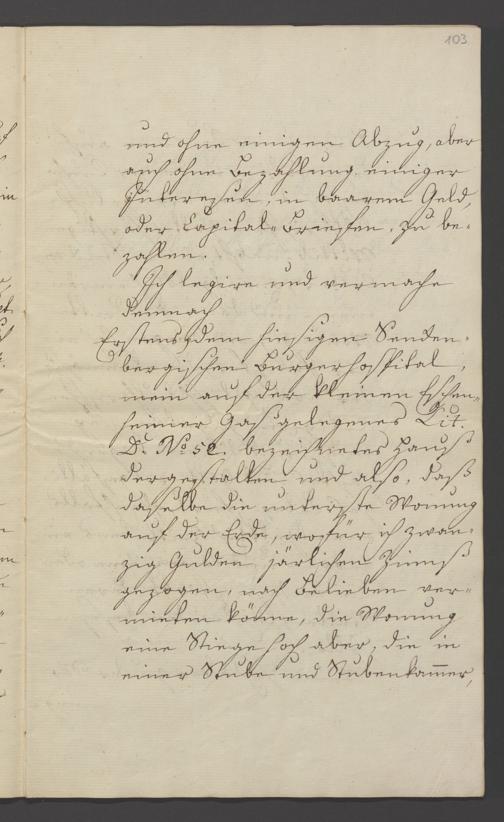 103
und ohne einigen Abzug, aber
auch ohne Bezahlung einiger
Interessen, in baarem Geld,
oder Capital-Briefen, zu be-
zahlen.
Ich legire und vermache
demnach
Erstens, dem hiesigen Senken-
bergischen Burgerhospital,
mein auf der kleinen Eschen-
heimer Gaß gelegenes Lit.
D. No 52. bezeichnetes Hauß
dergestalten und also, daß
dasselbe die unterste Wonung
auf der Erde, wofür ich zwan-
zig Gulden järlichen Zinnß
gezogen, nach Belieben ver-
mieten könne, die Wonung
eine Stiege hoch aber, die in
einer Stube und Stubenkam̄er,